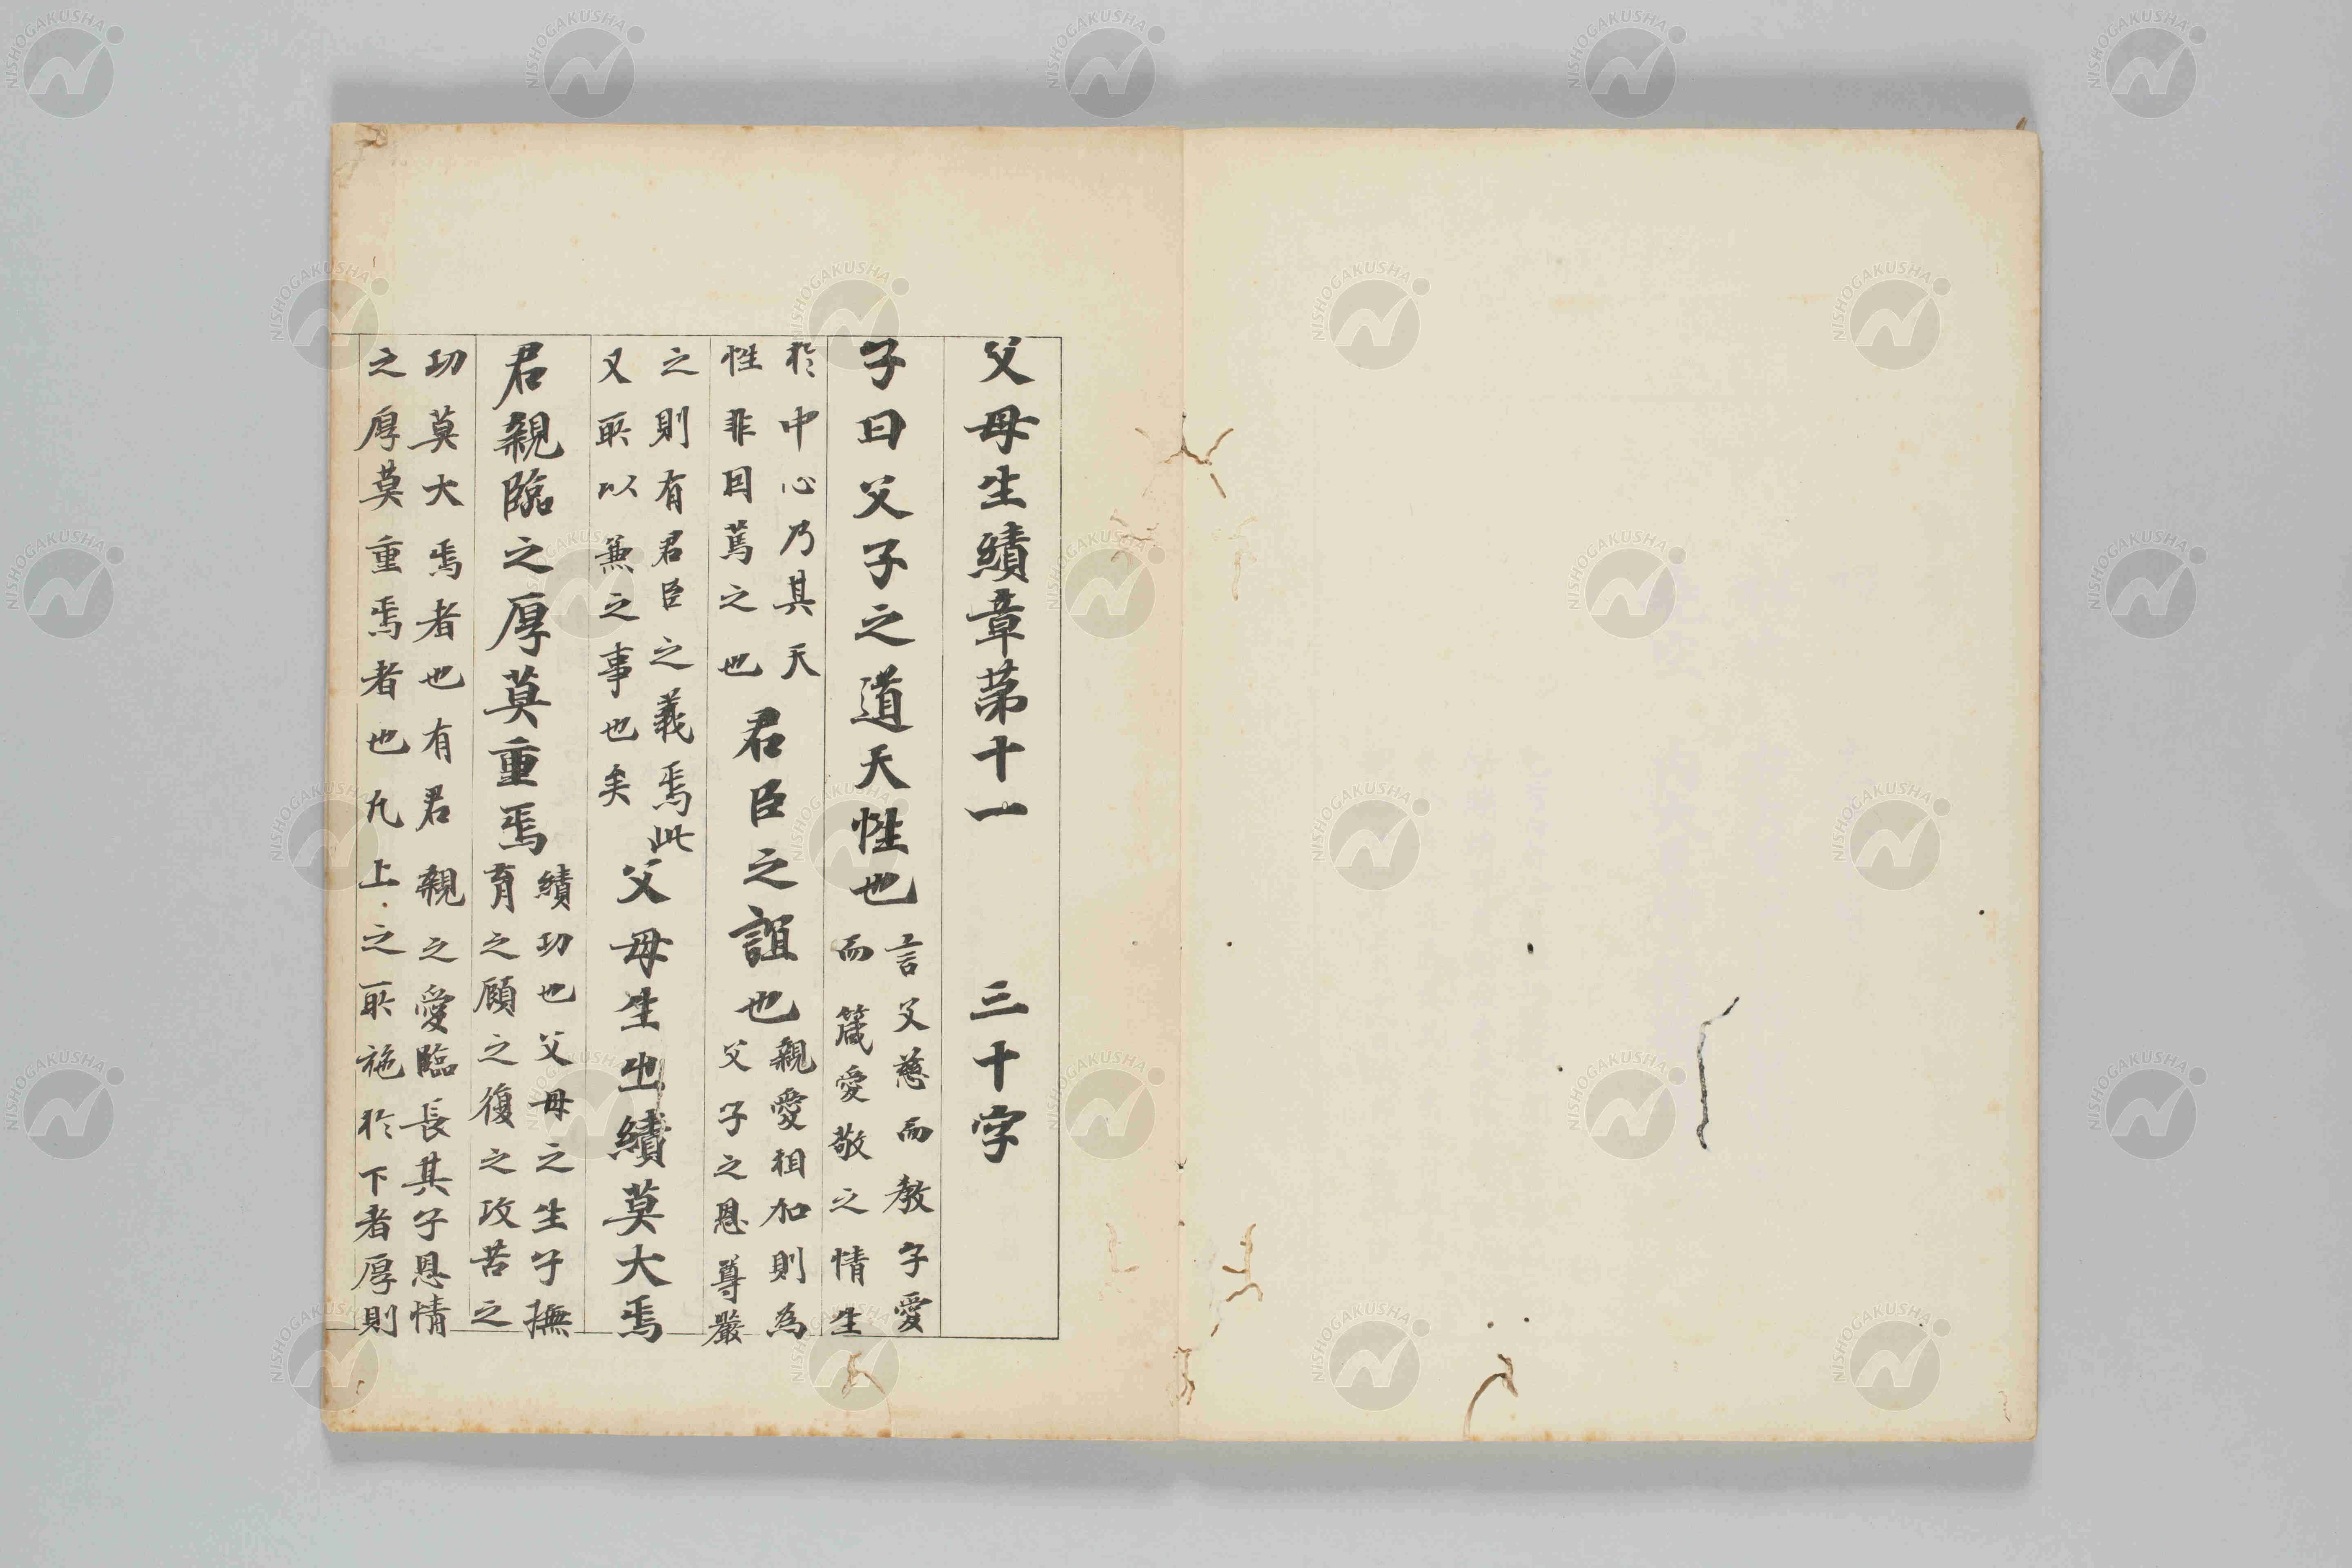 父母生績章第十一 三十字
子曰父子之道天性也
言父慈而教子愛
而箴愛敬之情生
於中心乃其天
性非因篤之也
君臣之誼也
親愛相加則為
父子之恩尊嚴
之則有君臣之義焉此
又取以無之事也矣
父母生㞢績莫大焉
績功也父母之生子撫
育之顧之復之攻苦之
君親臨之厚莫重焉
功莫大焉者也有君親之愛臨長其子恩情
之厚莫重焉者也凡上之取施於下者厚則
NISHOGAKUSHA